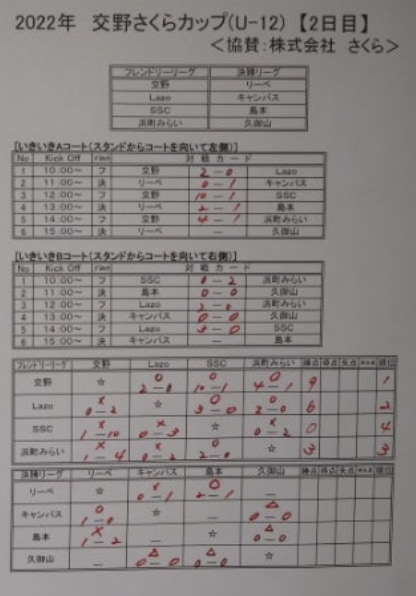 2022年 交野さくらカップ(U-12) 【2日目】
＜協賛：株式会社 さくら＞
フレンドリーリーグ 決勝リーグ
交野 リーベ
Lazo キャンバス
SSC 島本
浜町みらい 久御山
[いきいきAコート(スタンドからコートを向いて左側)]
No Kick Off 対戦カード
1 10:00～ フ 交野 2 — 0 Lazo
2 11:00～ 決 リーベ 0 — 1 キャンバス
3 12:00～ フ 交野 10 — 1 SSC
4 13:00～ 決 リーベ 2 — 1 島本
5 14:00～ フ 交野 4 — 1 浜町みらい
6 15:00～ 決 リーベ — 久御山
[いきいきBコート(スタンドからコートを向いて右側)]
No Kick Off 対戦カード
1 10:00～ フ SSC 0 — 2 浜町みらい
2 11:00～ 決 島本 0 — 0 久御山
3 12:00～ フ Lazo 2 — 0 浜町みらい
4 13:00～ 決 キャンバス 0 — 0 久御山
5 14:00～ フ Lazo 3 — 0 SSC
6 15:00～ 決 キャンバス — 島本
フレンドリーリーグ 交野 Lazo SSC 浜町みらい 勝点 得点 失点 順位
交野 ☆ ○ 2 — 0 ○ 10 — 1 ○ 4 — 1 9 1
Lazo × 0 — 2 ☆ ○ 3 — 0 ○ 2 — 0 6 2
SSC × 1 — 10 × 0 — 3 ☆ × 0 — 2 0 4
浜町みらい × 1 — 4 × 0 — 2 ○ 2 — 0 ☆ 3 3
決勝リーグ リーベ キャンバス 島本 久御山 勝点 得点 失点 順位
リーベ ☆ × 0 — 1 ○ 2 — 1 —
キャンバス ○ 1 — 0 ☆ — △ 0 — 0
島本 × 1 — 2 — ☆ △ 0 — 0
久御山 — △ 0 — 0 △ 0 — 0 ☆